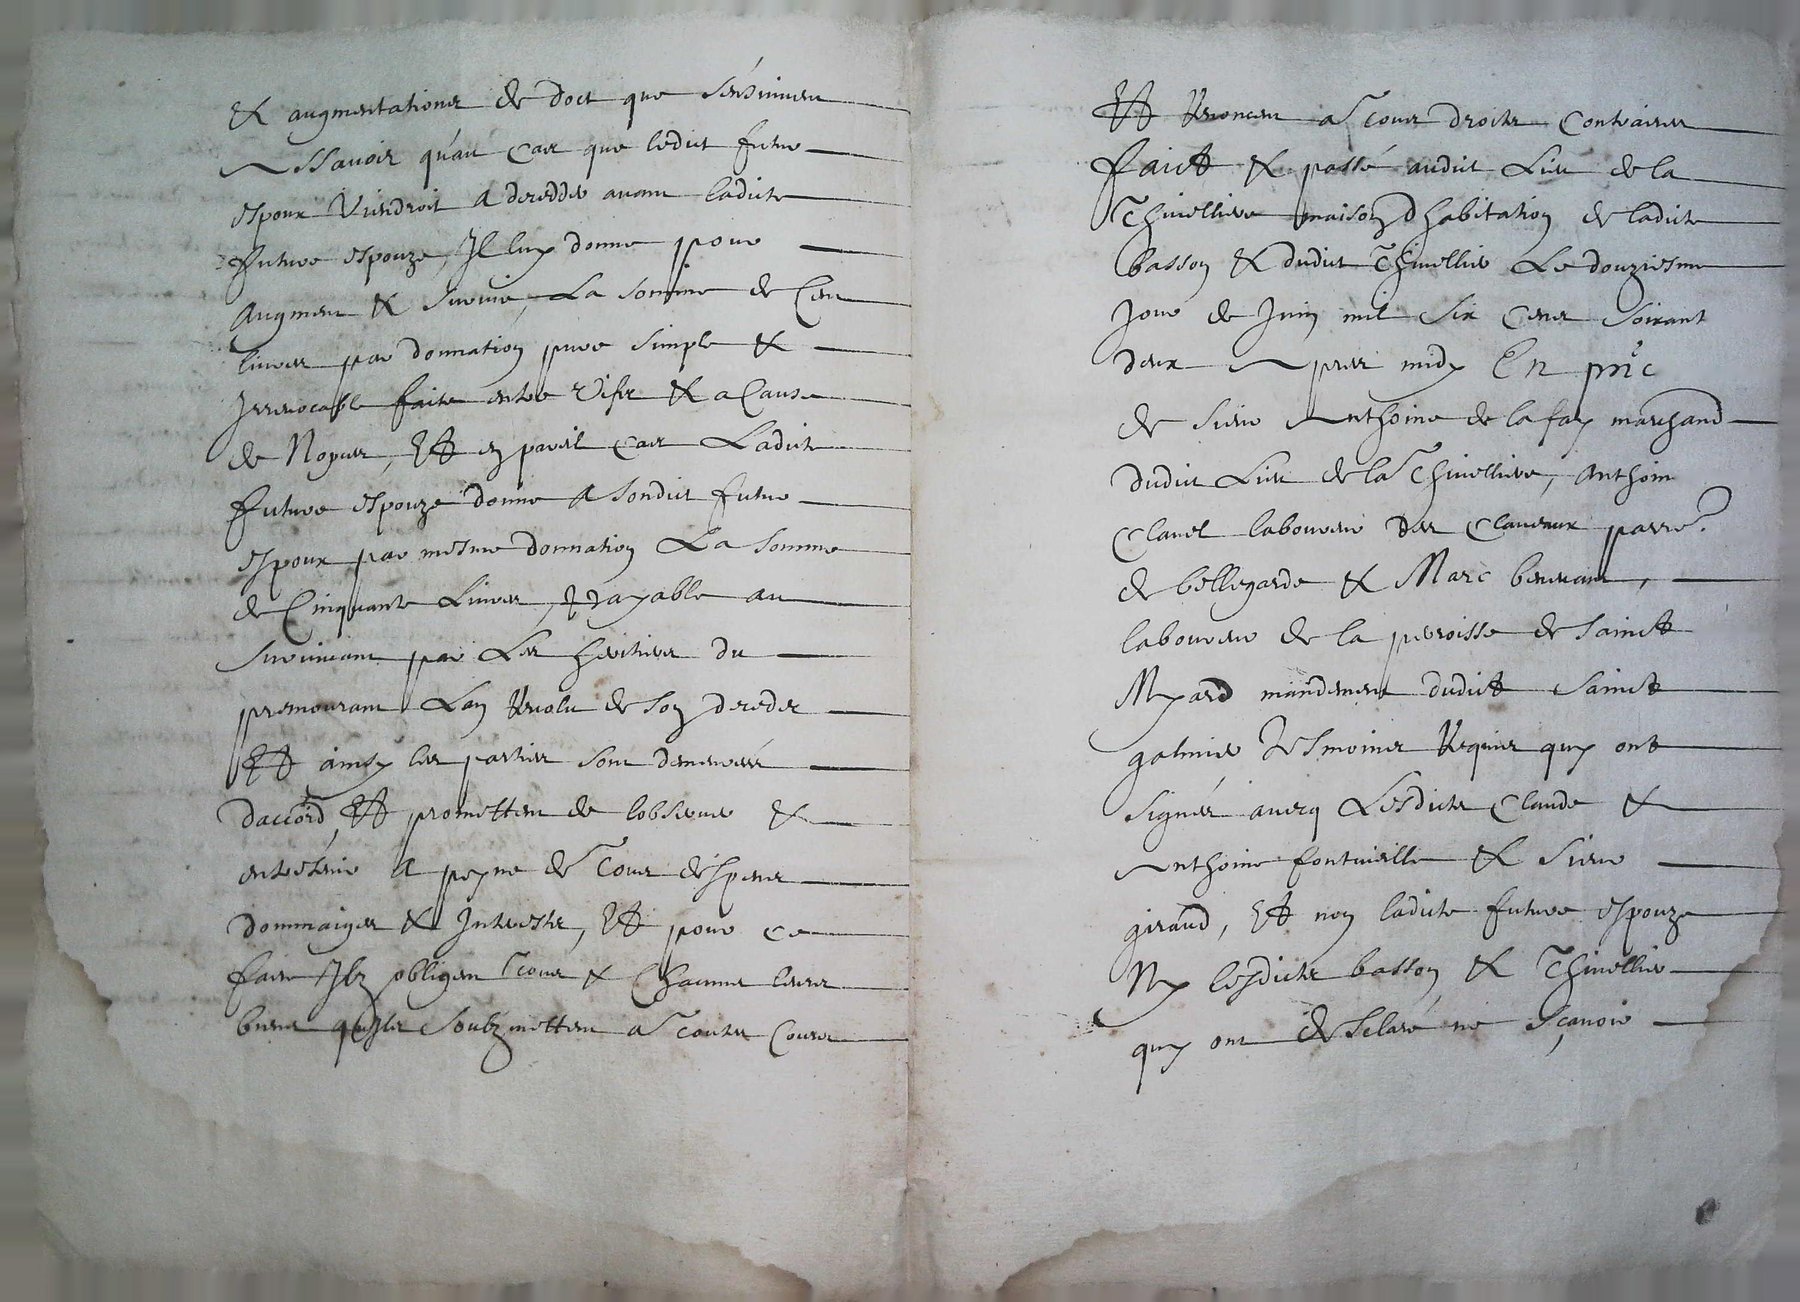 Et augmentations de doct que sensuivent
Assavoir quau cas que ledict futur
espoux viendroit a dexedder avant ladicte
future espouze, Il luy donne pour
augment et survie, La somme de Cent
livres par donnation pure simple et
Irrevocable faite entre vifz et a cause
de Nopces, Et en pareil cas Ladicte
future espouze donne a sondict futur
espoux par mesme donnation La somme
de Cinquante Livres, payable au
survivant par Les heritiers du
premourant Lan Revolu de son decedz
Et ainsy les parties sont demeurées
daccord, Et promettent de lobserver et
entretenir a peyne de tous despens
dommaiges et Interestz, Et pour ce
faire Ilz obligent tous et Chacuns leurs
biens quilz soubzmettent a toutes Cours
Et Renoncent a tous droictz Contraires
Faict et passé audict Lieu de la
Thivelliere maison dhabitation de ladicte
basson et dudict Thivellier Le douziesme
Jour de Juin mil six Cens soixant
deux Apres midy En pñce
de sieur Anthoine de la fay marchand
dudict Lieu de la Thivelliere, Anthoin
Clavel laboureur des Claveaux parre.
de bellegarde et Marc
laboureur de la parroisse de Sainct
Myard mandement dudict Sainct
galmier Tesmoins Requis quy ont
signés avecq Lesdicts Claude et
Anthoine fontvielle et sieur
giraud, Et non ladicte future espouze
Ny lesdicts basson et Thivellier
quy ont desclaré ne sçavoir